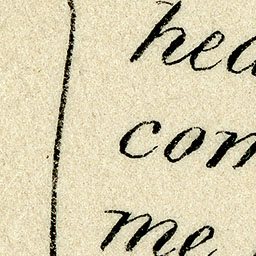 hea
com
me